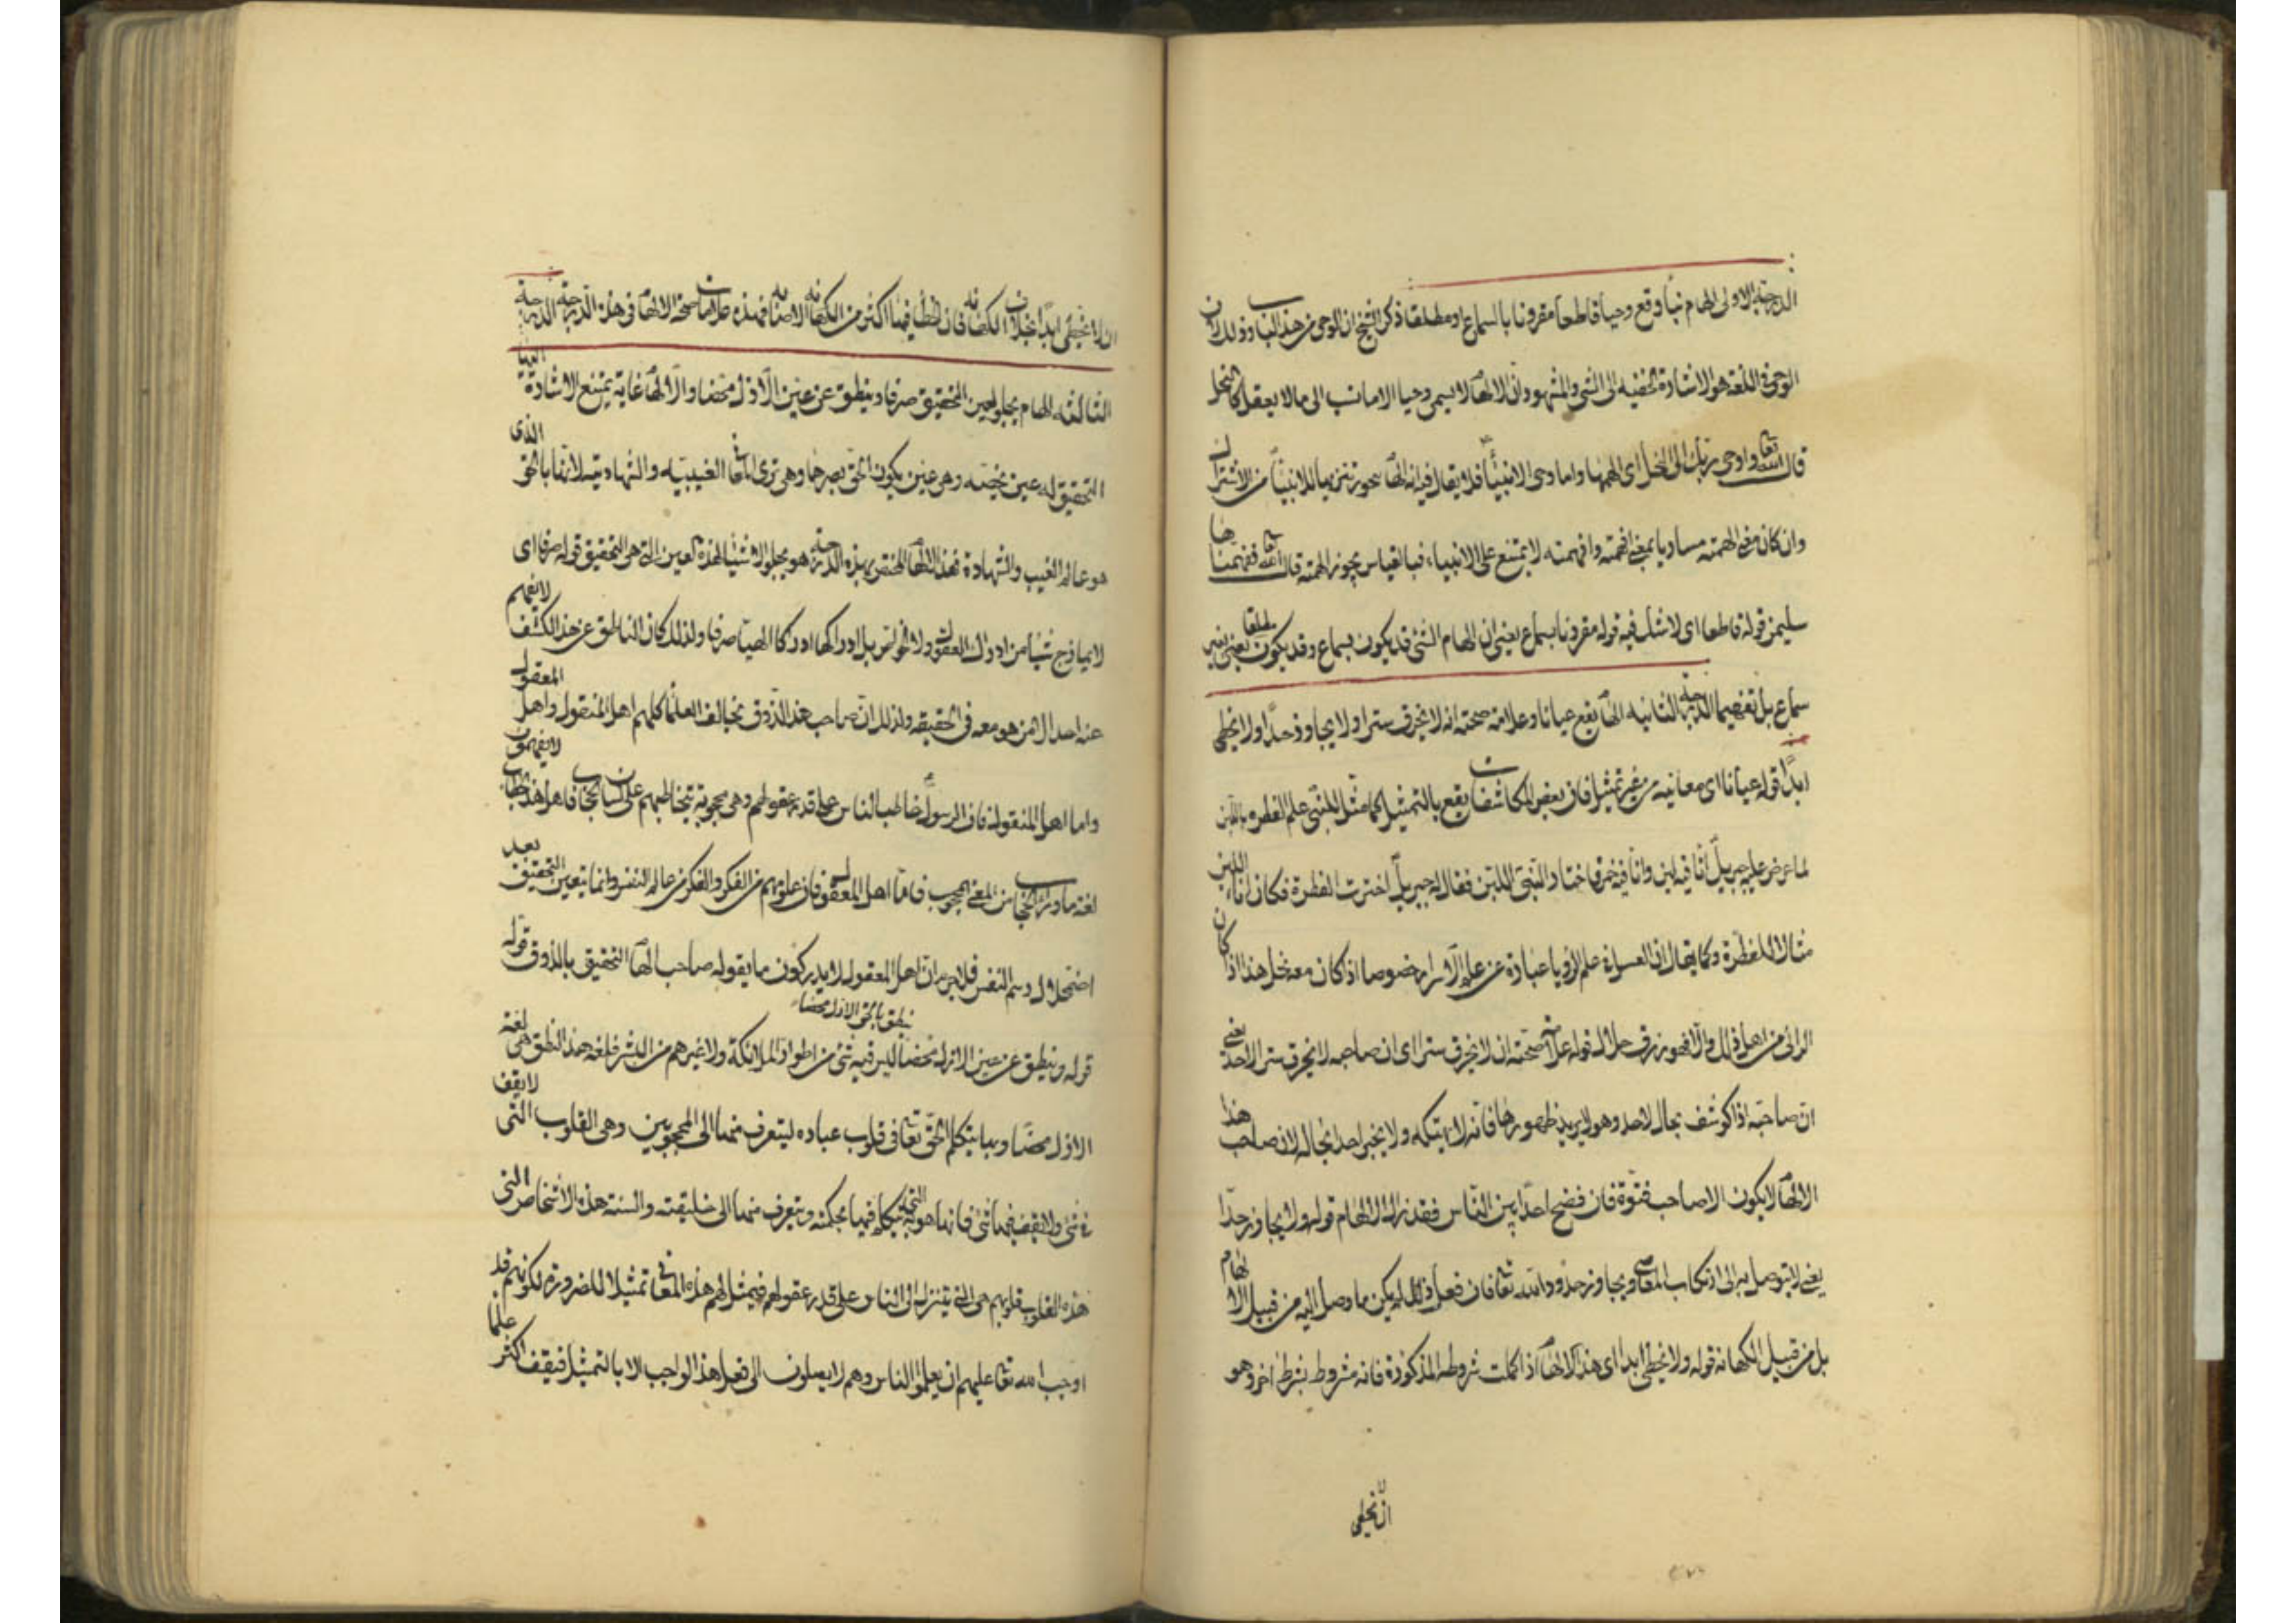 الدرجة الاولى الهام نبأ وقع وحيا قاطعا مقرونا بالسماع او مطلقا ذكر الشيخ ان الوحي من هذا الباب وذلك لان
الوحي في اللغة هو الاشارة الخفية الى الشي والمشهود وان الالهام لا يسمى وحيا الا ما نسب الى ما لا يعقل كالنحل
قال الله تعا واوحى ربك الى النحل اى الهمها واما وحى الانبياء فلا يقال فيه انه الهام بجوز تنزيها للانبياء من الاشتراك
وان كان معنى الهمته مساويا بمعنى افهمته وافهمته لا يمتنع على الانبياء فبالقياس يجوز الهمته قال الله تعا ففهمناها
سليمن قوله قاطعا اى لا شك فيه قوله مقرونا بسماع يعنى ان الهام الشئ قد يكون بسماع وقد يكون مطلقا يعنى بغير
سماع بل تفهيما الدرجة الثانية الهام يقع عيانا وعلامة صحته انه لا يخرق سترا ولا يجاوز حدا ولا يخطى
ابدا قوله عيانا اى معانيه من غير تمثيل فان بعض المكاشفات يقع بالتمثيل كما مثل للنبى علم الفطره باللبن
لما عرض عليه جبريل اناء فيه لبن واناء فيه خمر فاختار النبى اللبن فقال له جبريل اخترت الفطرة فكان اناء اللبن
مثالا للفطرة وكما يقال ان العسل فى علم الرويا عبارة عن علم الاسرار خصوصا اذ كان معه نحل هذا اذا كان
الرائى من اهل والا فهو رزق حلال قوله علامة صحته ان لا يخرق سترا اى ان صاحبه لا يخرق ستر الاحد يعنى
ان صاحبه اذا كوشف بحال لاحد وهو لا يريد ظهورها فانه لا يهتكه ولا يخبر احدا بحاله لان صاحب هذا
الالهام لا يكون الا صاحب فتوة فان فضح احدا بين الناس فقد زال الالهام قوله ولا يجاوز حدا
يعنى لا يتوصل به الى ارتكاب المعاصى ويجاوز حدود الله تعا فان فعل ذلك لم يكن ما وصل اليه من قبيل الالهام
بل من قبيل الكهانه قوله ولا يخطى ابدا اى هذا الالهام اذا كملت شروطه المذكورة فانه مشروط بشرط اخر وهو
ان لا يخطى
ان لا يخطى ابدا بخلاف الكهانه فان الخطا فيها اكثر من الكهانه الاصابه فهذه علامات صحة الالهام فى هذه الدرجة الدرجة
الثالثه الهام يجلو لعين التحقيق صرفا وينطق عن عين الازل محضا والالهام غاية يمتنع الاشارة اليها
التحقيق له عين تخصه وهى عين يكون الحق بصرها وهى ترى الغيبيه والشهاديه لانها بالحق الذى
هو عالم الغيب والشهادة فهذا الالهام المختص بهذه الدرجة هو يجلو الاشياء لهذه العين التى هى التحقيق قوله صرفا اى
لا يمازج شيا من ادراك العقول ولا الحواس بل ادراكها ادراكا الهيا صرفا ولذلك كان الناطق عن هذا الكشف لا يفهم
عنه احد الا من هو معه فى الحقيقه ولذلك ان صاحب هذا الذوق يخالف العلماء كلهم اهل المنقول واهل المعقول
واما اهل المنقول فان الرسول خاطب الناس على قدر عقولهم وهى محجوبة يخاطبهم على لسان الحجاب فاهل هذا الخطاب لا يفهمون
لغة ما وراء الحجاب من المعنى المحجوب فاما اهل المعقول فان علومهم من الفكر والفكر من عالم النفس وانما يتعين التحقيق بعد
اضمحلال رسم النفس فلا جرم ان اهل المعقول لا يدركون ما يقوله صاحب الهام التحقيق بالذوق قوله
ينطق بالحق الازل محضا
قوله وينطق عن عين الازل محضا ليس فيه شئ من اطوار الملائكة ولا غيرهم من البشر فلغة هذا النطق هى لغة
الازل محضا وبها يتكلم الحق تعا فى قلوب عباده ليتعرف منها الى المحجوبين وهى القلوب التى لا يقف
فى شئ ولا يقف فيها شئ فانها هو يتكلم فيها بحكمته ويتعرف منها الى خليقته والسنة هذه الاشخاص التى
هذه القلوب قلوبهم هى التى يتنزل الى الناس على قدر عقولهم فيمثل لهم هذه المعانى تمثيلا للضرورة لكونهم قد
اوجب الله تعا عليهم ان يعلموا الناس وهم لا يصلون الى فعل هذا الواجب الا بالتمثيل فيقف اكثر علماء